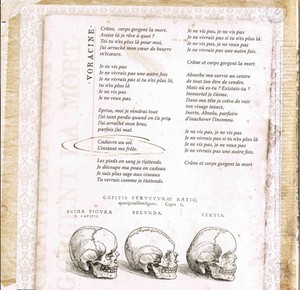 VORACINE
Crâne, corps gorgent la mort.
Assise là je rêve à quoi ?
Toi tu n'es plus là pour moi,
J'ai arraché mon cœur de beurre
Je ne vis pas
Je ne vivrais pas une autre fois
Je ne vivrais pas si tu n'es plus là,
tu n'es plus là
Je ne vis pas
Je ne veux pas.
Eprise, moi je vendrai tout
J'ai tant perdu quand on t'a pris
J'ai arraché mon bras,
parfois j'ai mal.
Cadavre au sol.
L'instant me frôle.
Les pieds en sang je t'attends.
Je découpe ma peau en cadeau
Je suis plus sage aux ciseaux
Tu verrais comme je t'attends.
Je ne vis pas, je ne vis pas
Je ne vivrais pas si tu n'es plus là
Je ne vis pas, je ne vis pas
Je ne vivrais pas une autre fois.
Crâne et corps gorgent la mort
Absorbe ma survie au centre
de tout ton être de cendre.
Mais où es-tu ? Existais-tu ?
Immortel je t'aime.
Dans ma tête je crève de voir
ton visage latent,
Inerte, Absolu, parfaire
d'anacharer l'inconnu.
Je ne vis pas, je ne vis pas
Je ne vivrais pas si tu n'es plus là
Je ne vis pas, je ne vis pas
Je ne vivrais pas une autre fois.
Crâne et corps gorgent la mort
CAPITIS STRUCTURAE RATIO,
PRIMA FIGURA
SECUNDA.
TERTIA.